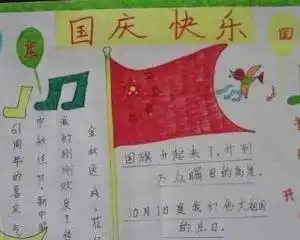 国庆快乐
国
金秋送爽，花
我们刚刚欢度了传
中秋佳节，新中国
61周年的喜庆与
国旗升起来了，升到
万众瞩目的高度。
10月1日是我们伟大祖国
的生日。